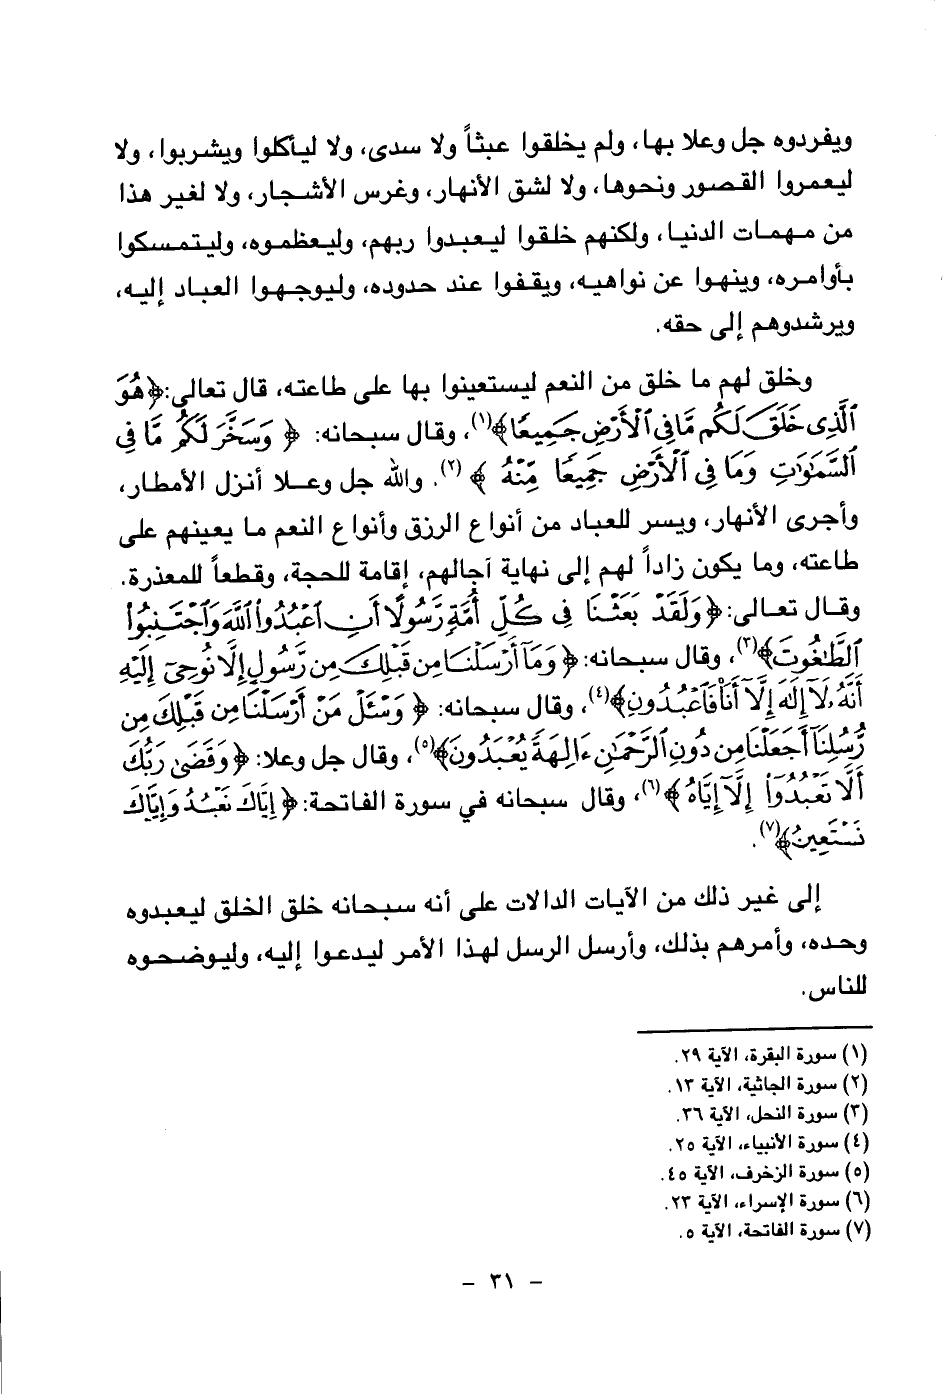 ويفردوه جل وعلا بها، ولم يخلقوا عبثاً ولا سدى، ولا ليأكلوا ويشربوا، ولا
ليعمروا القصور ونحوها، ولا لشق الأنهار، وغرس الأشجار، ولا لغير هذا
من مهمات الدنيا، ولكنهم خلقوا ليعبدوا ربهم، وليعظموه، وليتمسكوا
بأوامره، وينهوا عن نواهيه، ويقفوا عند حدوده، وليوجهوا العباد إليه،
ويرشدوهم إلى حقه.
وخلق لهم ما خلق من النعم ليستعينوا بها على طاعته، قال تعالى:﴿هُوَ
ٱلَّذِى خَلَقَ لَكُم مَّا فِى ٱلْأَرْضِ جَمِيعًا﴾(١)، وقال سبحانه: ﴿ وَسَخَّرَ لَكُم مَّا فِى
ٱلسَّمَٰوَٰتِ وَمَا فِى ٱلْأَرْضِ جَمِيعًا مِّنْهُ ﴾ (٢). والله جل وعلا أنزل الأمطار،
وأجرى الأنهار، ويسر للعباد من أنواع الرزق وأنواع النعم ما يعينهم على
طاعته، وما يكون زاداً لهم إلى نهاية آجالهم، إقامة للحجة، وقطعاً للمعذرة.
وقال تعالى:﴿وَلَقَدْ بَعَثْنَا فِى كُلِّ أُمَّةٍ رَّسُولًا أَنِ ٱعْبُدُوا۟ ٱللَّهَ وَٱجْتَنِبُوا۟
ٱلطَّٰغُوتَ﴾(٣)، وقال سبحانه:﴿وَمَآ أَرْسَلْنَا مِن قَبْلِكَ مِن رَّسُولٍ إِلَّا نُوحِىٓ إِلَيْهِ
أَنَّهُۥ لَآ إِلَٰهَ إِلَّآ أَنَا۠ فَٱعْبُدُونِ﴾(٤)، وقال سبحانه: ﴿ وَسْـَٔلْ مَنْ أَرْسَلْنَا مِن قَبْلِكَ مِن
رُّسُلِنَآ أَجَعَلْنَا مِن دُونِ ٱلرَّحْمَٰنِ ءَالِهَةً يُعْبَدُونَ﴾(٥)، وقال جل وعلا: ﴿وَقَضَىٰ رَبُّكَ
أَلَّا تَعْبُدُوٓا۟ إِلَّآ إِيَّاهُ ﴾(٦)، وقال سبحانه في سورة الفاتحة:﴿إِيَّاكَ نَعْبُدُ وَإِيَّاكَ
نَسْتَعِينُ﴾(٧).
إلى غير ذلك من الآيات الدالات على أنه سبحانه خلق الخلق ليعبدوه
وحده، وأمرهم بذلك، وأرسل الرسل لهذا الأمر ليدعوا إليه، وليوضحوه
للناس.
(١) سورة البقرة، الآية ٢٩.
(٢) سورة الجاثية، الآية ١٣.
(٣) سورة النحل، الآية ٣٦.
(٤) سورة الأنبياء، الآية ٢٥.
(٥) سورة الزخرف، الآية ٤٥.
(٦) سورة الإسراء، الآية ٢٣.
(٧) سورة الفاتحة، الآية ٥.
- ٣١ -